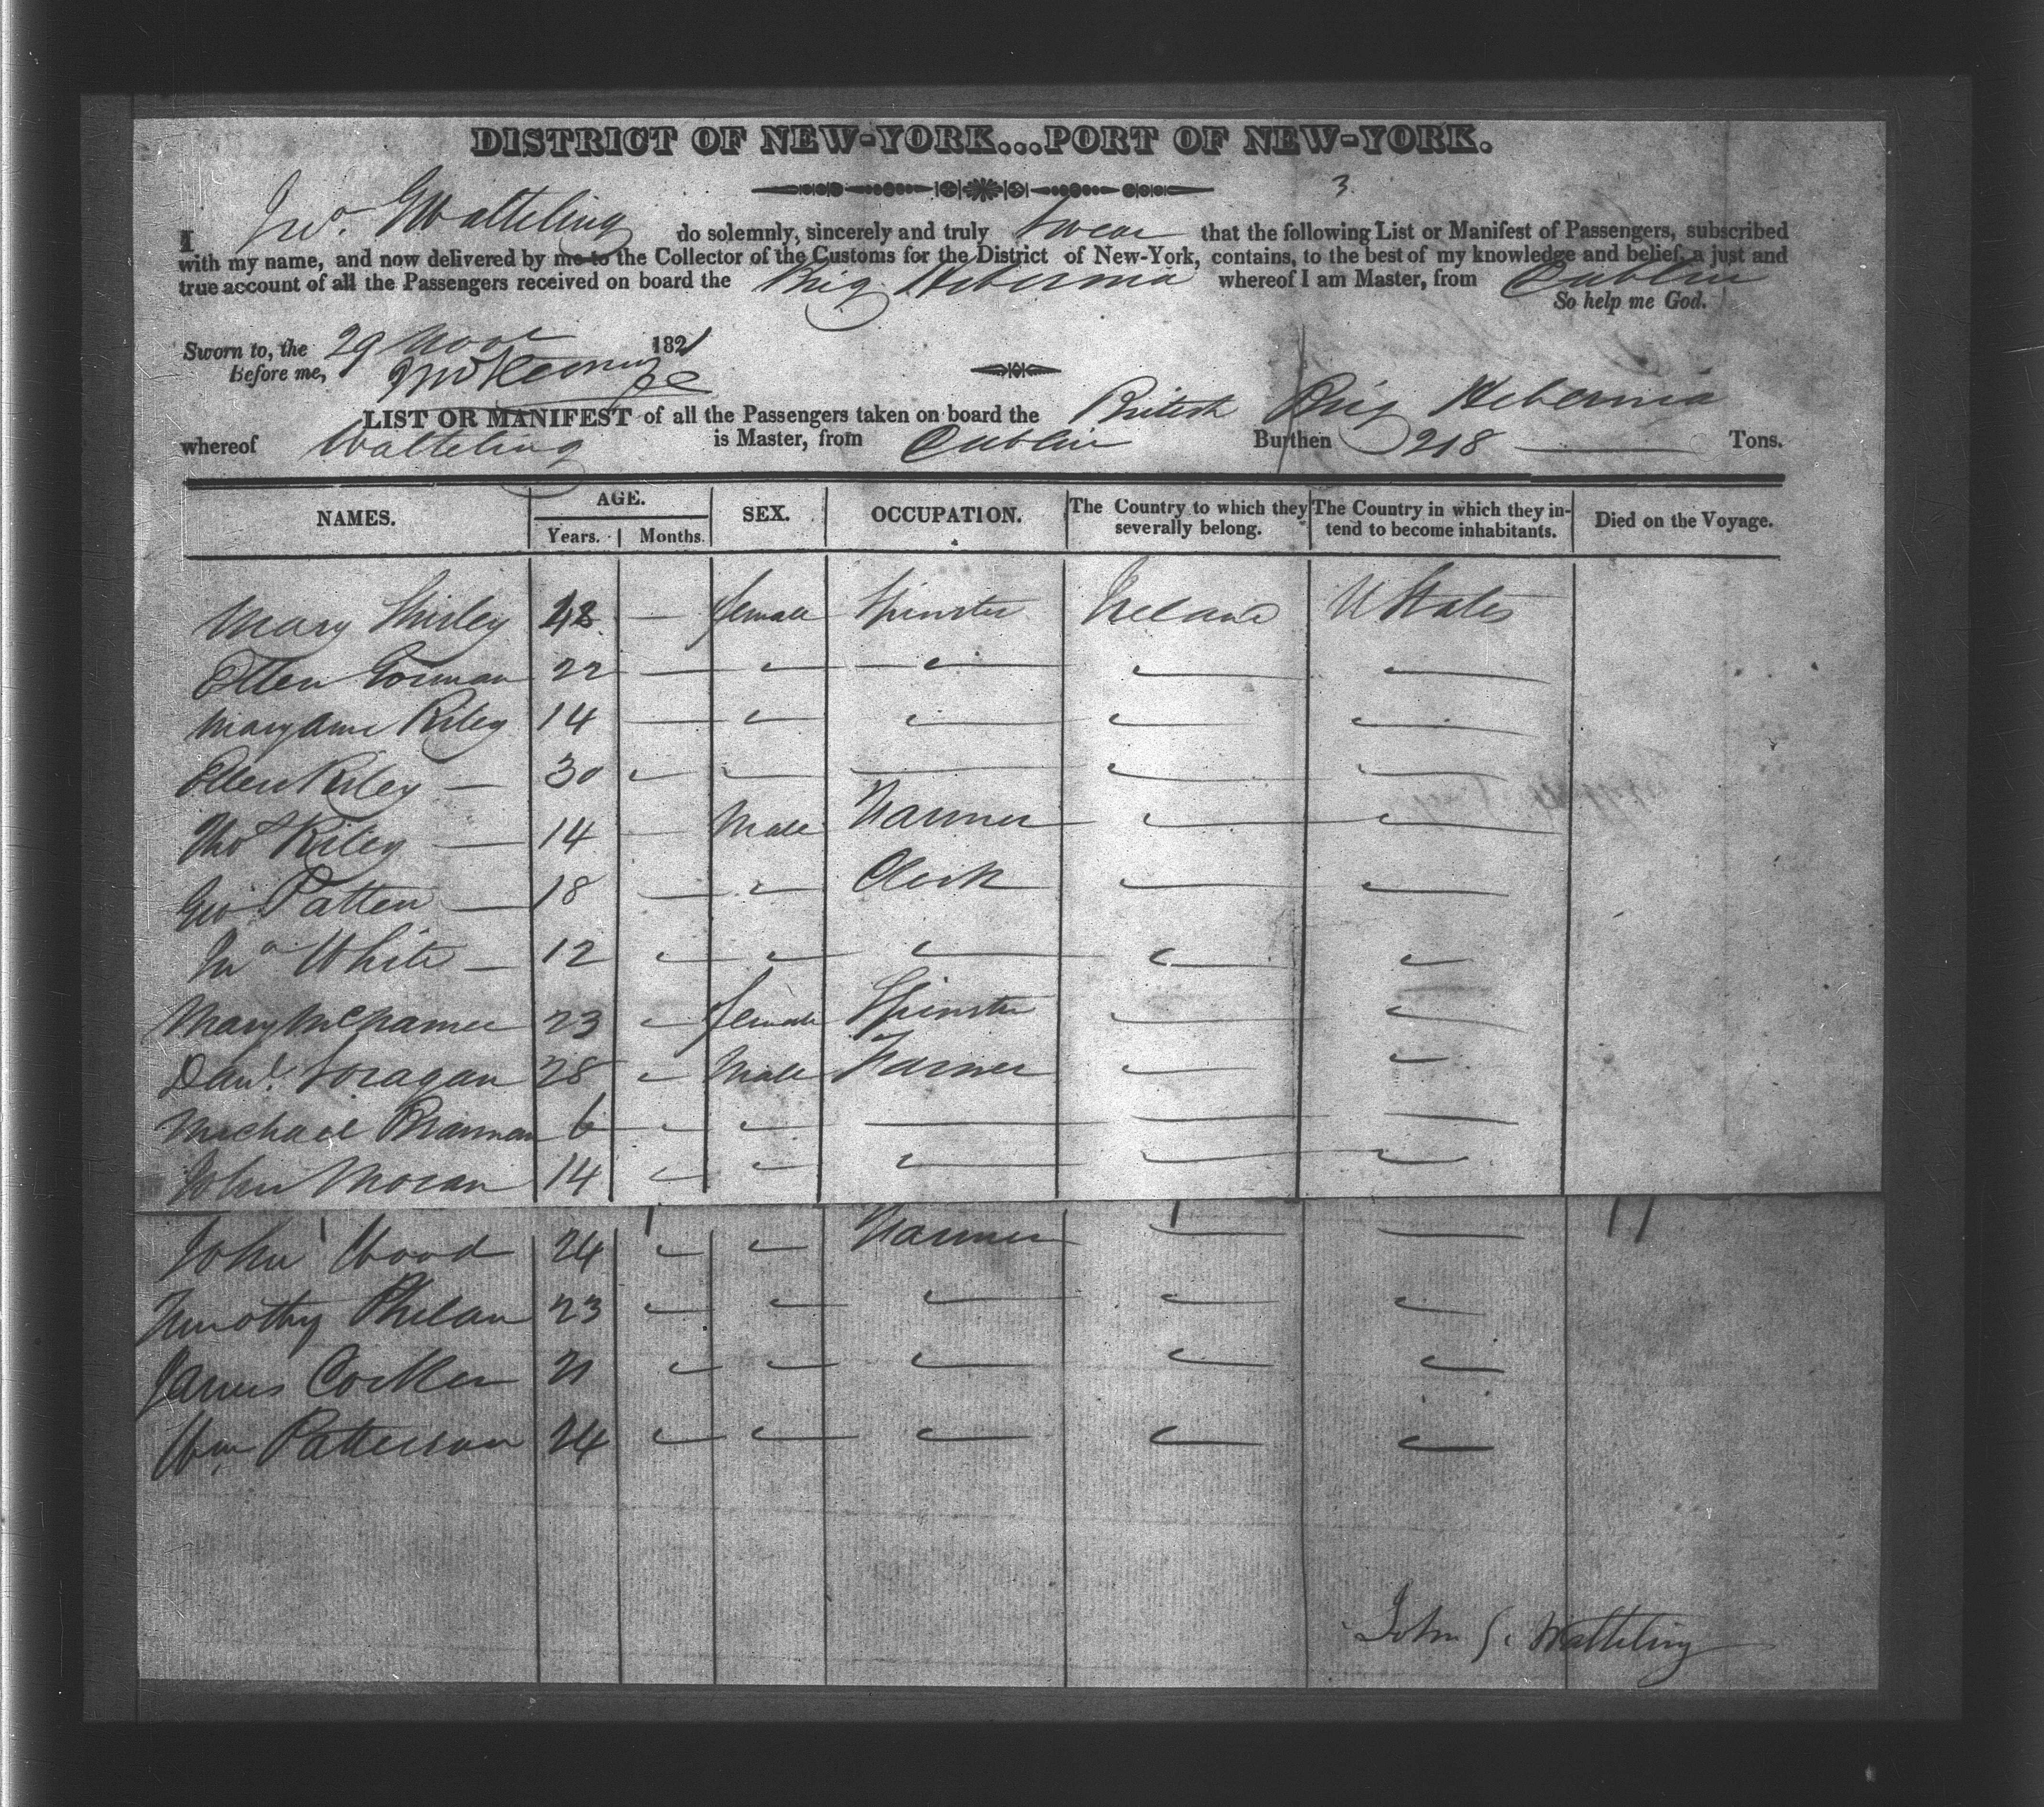 DISTRICT OF NEW-YORK...PORT OF NEW-YORK.
3
I Jno. G Watteling do solemnly, sincerely and truly Swear that the following List or Manifest of Passengers, subscribed
with my name, and now delivered by me to the Collector of the Customs for the District of New-York, contains, to the best of my knowledge and belief, a just and
true account of all the Passengers received on board the Brig Hebernia whereof I am Master, from Dublin
So help me God.
Sworn to, the 29 Nov 1821
Before me,
LIST OR MANIFEST of all the Passengers taken on board the British Brig Hebernia
whereof Watteling is Master, from Dublin Burthen 218 Tons.
NAMES. AGE. SEX. OCCUPATION. The Country to which they severally belong. The Country in which they intend to become inhabitants. Died on the Voyage.
Years. Months.
Mary Shirley 48 — female Spinster Ireland U States
Ellen Gorman 22
Mary Ann Riley 14
Ellen Riley — 30
Thos Riley — 14 Male Farmer
Geo Patten — 18 Clerk
Jno White — 12
Mary McNamee 23 female Spinster
Danl. Loragan 28 Male Farmer
Michael Brannan 6
John Moran 14
John Wood 24 Farmer
Timothy Phelan 23
James Corken 21
Wm Patterson 24
John G. Watteling